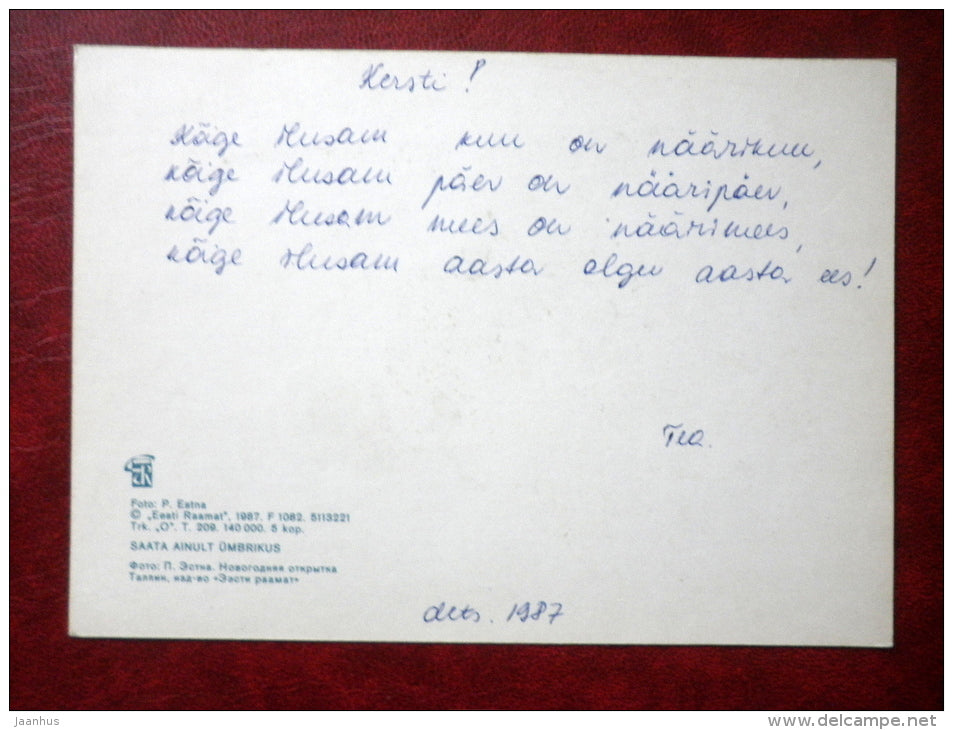 Kersti!
Kõige ilusam kuu on näärikuu,
kõige ilusam päev on nääripäev,
kõige ilusam mees on näärimees,
kõige ilusam aasta olgu aasta ees!
Tea.
Foto: P. Estna
© „Eesti Raamat", 1987. F 1082. 5113221
Trk. „O". T. 209. 140 000. 5 kop.
SAATA AINULT ÜMBRIKUS
Фото: П. Эстна. Новогодняя открытка
Таллин, изд-во «Ээсти раамат»
dets. 1987
Jaanhus
www.delcampe.net